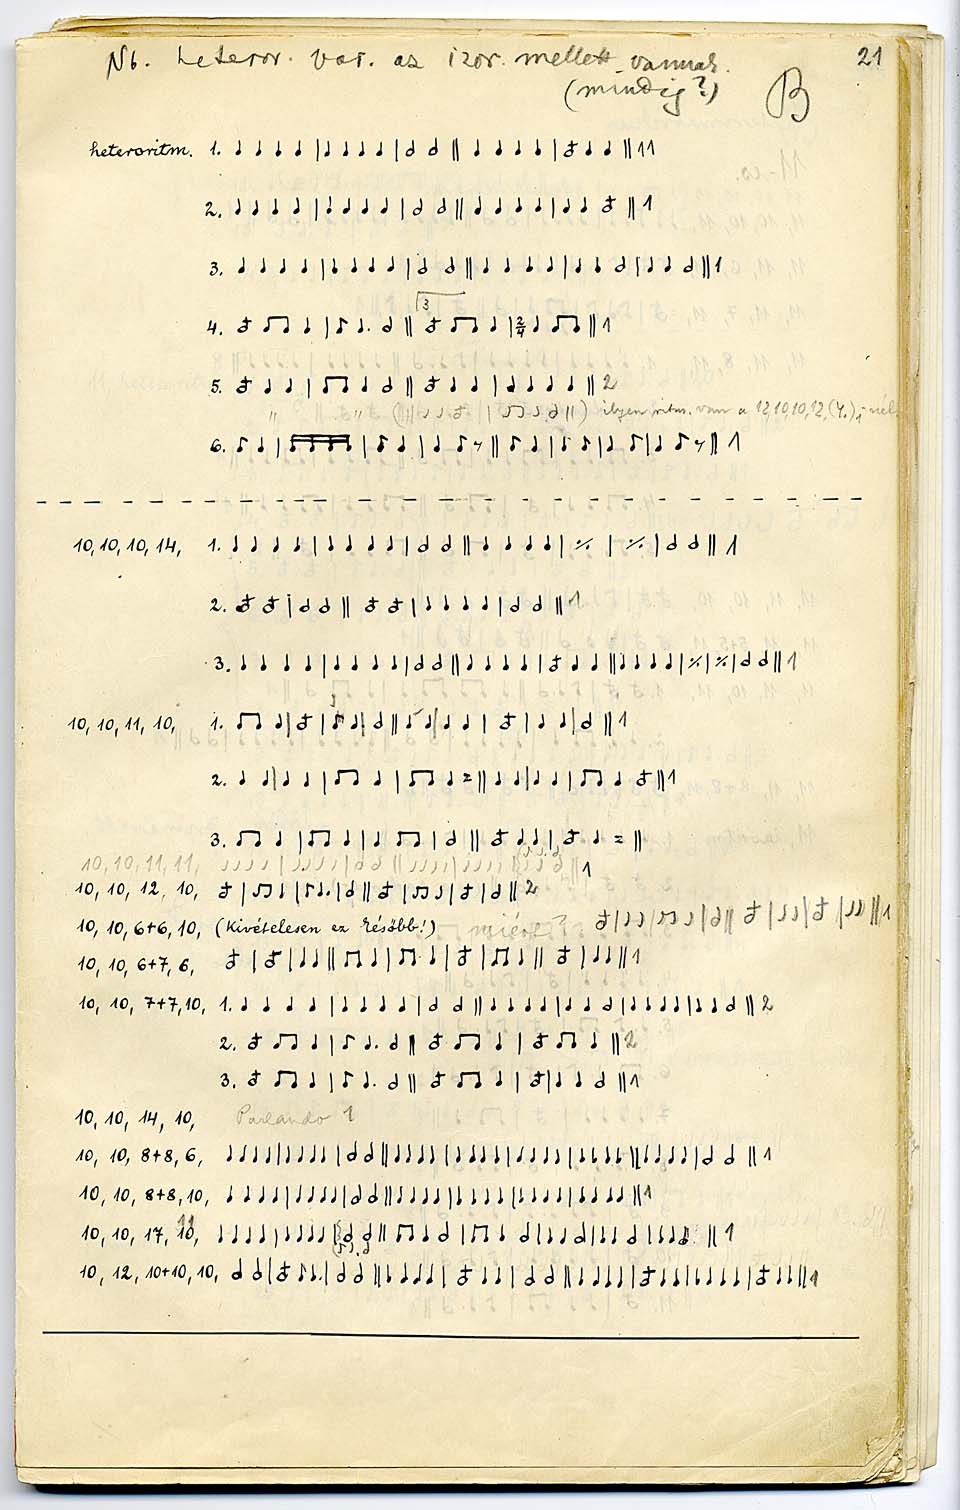 Nb. heteror. var. az izor. mellett vannak. 21
(mindig?) B
heteroritm. 1. 11
2. 1
3. 1
3
4. 2/4 1
5. 2
" " ( ) ilyen ritm. van a 12,10,10,12,
6. 1
10, 10, 10, 14, 1. 1
2. 1
3. 1
10, 10, 11, 10, 1. 1
2. 1
3.
10, 10, 11, 11, 1
10, 10, 12, 10, 2
10, 10, 6+6, 10, (Kivételesen ez később!) miért? 1
10, 10, 6+7, 6, 1
10, 10, 7+7, 10, 1. 2
2. 2
3. 1
10, 10, 14, 10, Parlando 1
10, 10, 8+8, 6, 1
10, 10, 8+8, 10, 1
10, 10, 17, 11, 1
10, 12, 10+10, 10, 1